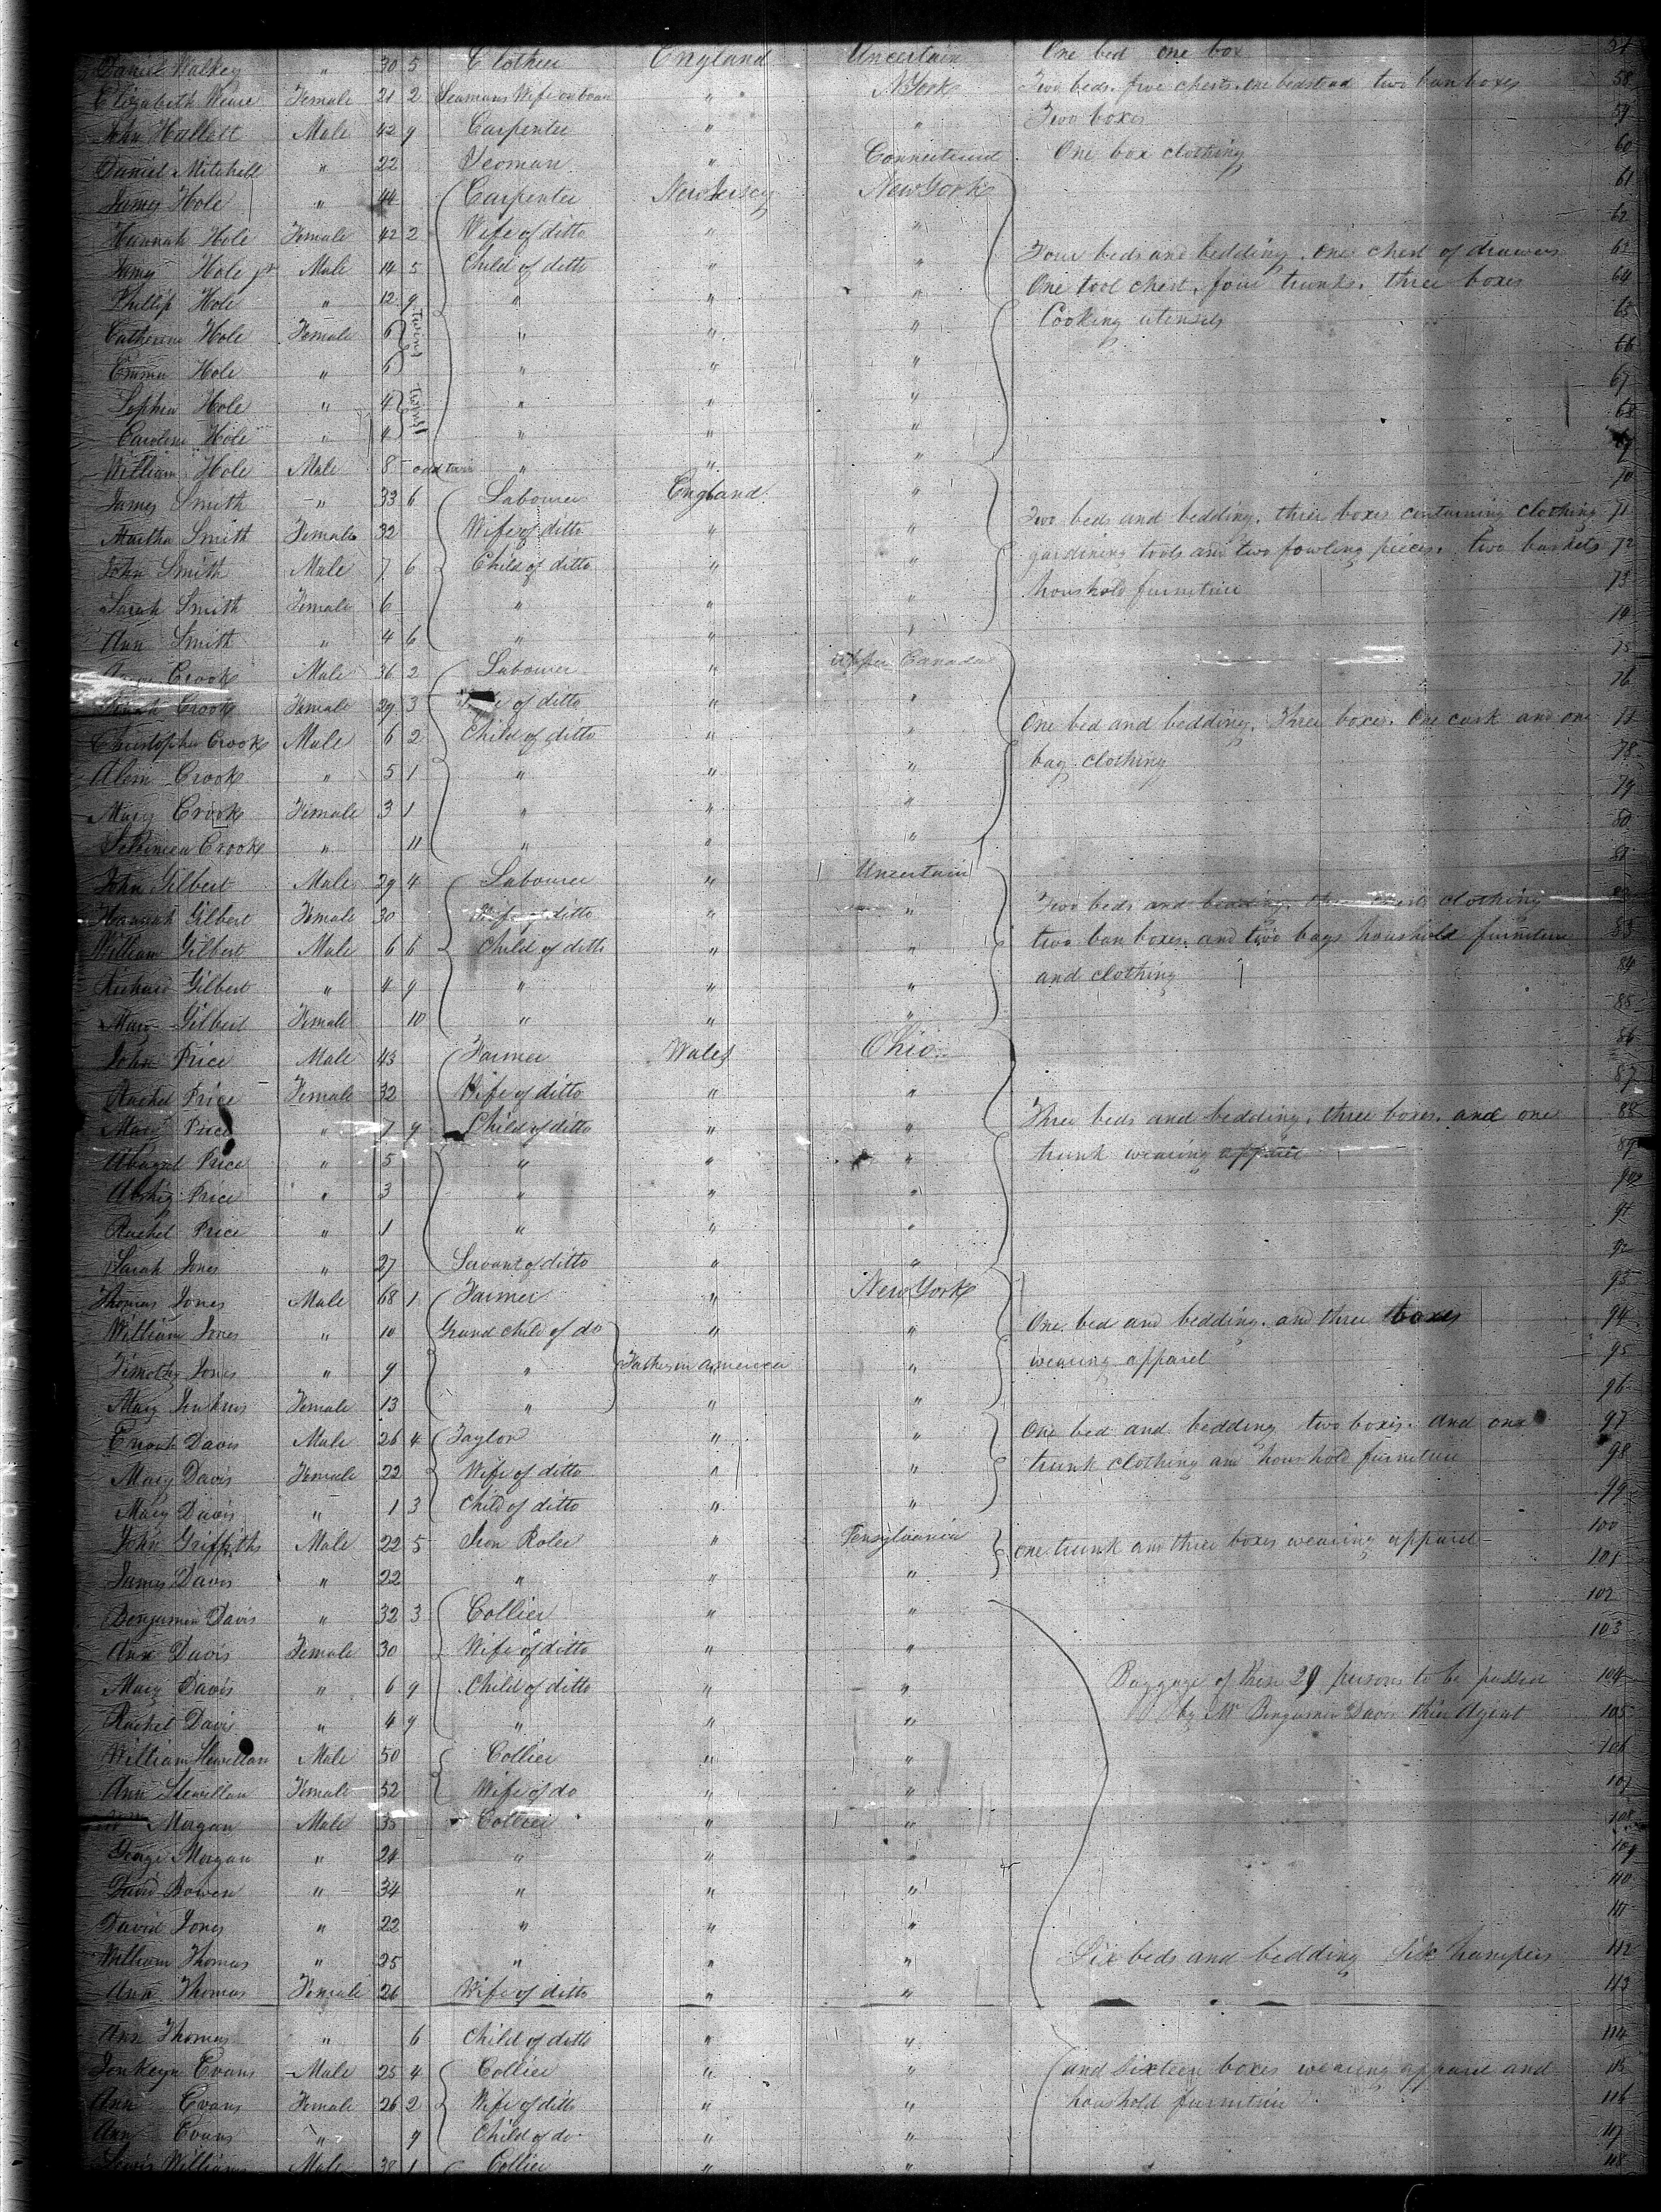 Daniel Walkey " 30 5 Clothier England Uncertain One bed one box 57
Elizabeth Weare Female 21 2 Seamans Wife on board " " N York Two beds. five chests. one bedstead two ban boxes 58
John Hallett Male 42 9 Carpenter " " Two boxes 59
Daniel Mitchell " 22 Yeoman " Connecticut One box clothing 60
James Hole " 44 Carpenter New Jersey New York 61
Hannah Hole Female 42 2 Wife of ditto " " 62
James Hole jr Male 14 5 Child of ditto " " Four beds and bedding. one chest of drawers 63
Phillip Hole " 12 9 " " " One tool chest. four trunks. three boxes 64
Catherine Hole Female 6 twins " " " Cooking utensils 65
Emma Hole " 6 " " " 66
Sophia Hole " 4 twins " " " 67
Caroline Hole " 4 " " " 68
William Hole Male 8 - odd twin " " " 69
James Smith " 33 6 Labourer England " 70
Martha Smith Female 32 Wife of ditto " " Two beds and bedding. three boxes containing clothing 71
John Smith Male 7 6 Child of ditto " " gardining tools and two fowling pieces. two baskets 72
Sarah Smith Female 6 " " " houshold furniture 73
Ann Smith " 4 6 " " " 74
Crook Male 36 2 Labourer " Upper Canada 75
Crook Female 29 3 of ditto " " 76
Christopher Crook Male 6 2 Child of ditto " " One bed and bedding. Three boxes. One cask and one 77
Crook " 5 1 " " " bag clothing 78
Mary Crook Female 3 1 " " " 79
Crook " 11 " " " 80
John Gilbert Male 29 4 Labourer " Uncertain 81
Hannah Gilbert Female 30 Wife of ditto " " Two beds and bedding. clothing 82
William Gilbert Male 6 6 Child of ditto " " two ban boxes. and two bags houshold furniture 83
Richard Gilbert " 4 9 " " " and clothing 84
Mary Gilbert Female 10 " " " 85
John Price Male 43 Farmer Wales Ohio 86
Rachel Price Female 32 Wife of ditto " " 87
Mary Price " 7 9 Child of ditto " " Three beds and bedding. three boxes. and one 88
Abagal Price " 5 " " " trunk wearing apparel 89
Price " 3 " " " 90
Rachel Price " 1 " " " 91
Sarah Jones " 27 Servant of ditto " " 92
Thomas Jones Male 68 1 Farmer " New York 93
William Jones " 10 Grand child of do " " One bed and bedding. and three boxes 94
Timothy Jones " 9 " Father in America " wearing apparel 95
Mary Jenkins Female 13 " " " 96
Enoch Davis Male 26 4 Taylor " " One bed and bedding two boxes. and one 97
Mary Davis Female 22 Wife of ditto " " trunk clothing and houshold furniture 98
Mary Davis " 1 3 Child of ditto " " 99
John Griffiths Male 22 5 Iron Roler " Pensylvania one trunk and three boxes wearing apparel 100
James Davis " 22 " " " 101
Benjamin Davis " 32 3 Collier " " 102
Ann Davis Female 30 Wife of ditto " " 103
Mary Davis " 6 9 Child of ditto " " Baggage of these 29 persons to be passed 104
Rachel Davis " 4 9 " " " by Mr Benjamin Davis their Agent 105
William Llewellan Male 50 Collier " " 106
Ann Llewellan Female 52 Wife of do " " 107
Morgan Male 35 Collier " " 108
George Morgan " 24 " " " 109
David Bowen " 34 " " " 110
David Jones " 22 " " " 111
William Thomas " 25 " " " Six beds and bedding Six hampers 112
Ann Thomas Female 26 Wife of ditto " " 113
Ann Thomas " 6 Child of ditto " " 114
Jenkeyn Evans Male 25 4 Collier " " and sixteen boxes wearing apparel and 115
Ann Evans Female 26 2 Wife of ditto " " houshold furniture 116
Ann Evans " 9 Child of do " " 117
Lewis Williams Male 38 1 Collier " " 118